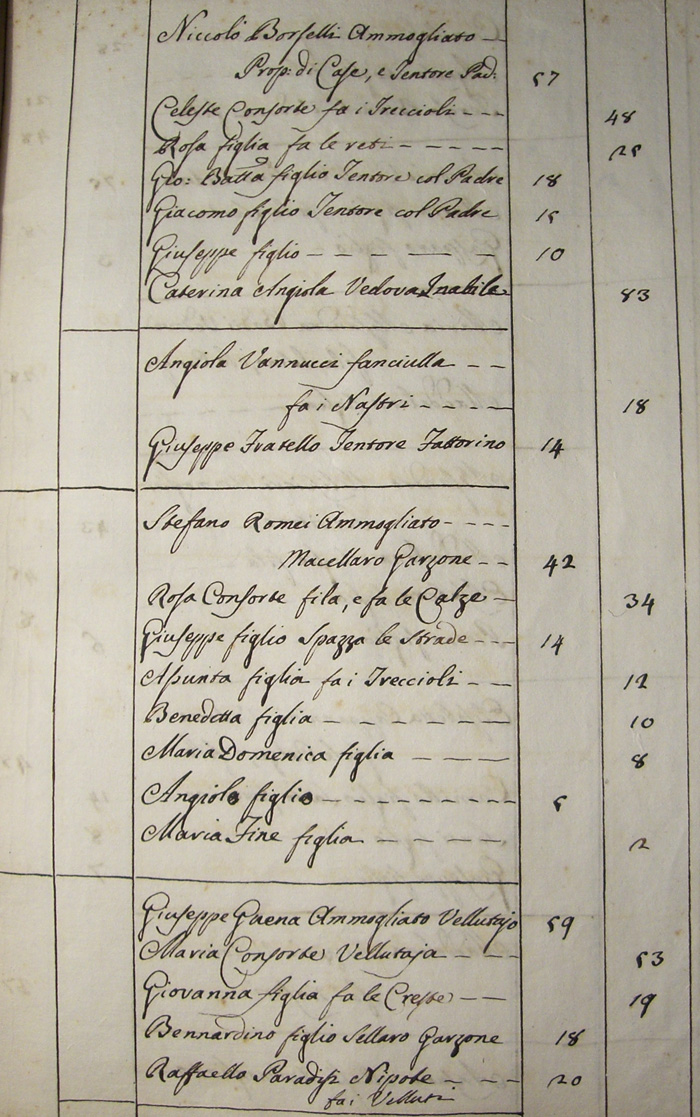 Niccolò Borselli Ammogliato
Prop: di Case, e Tentore Pad: 57
Celeste Consorte fa i Treccioli 48
Rosa figlia fa le reti 25
Gio: Batta figlio Tentore col Padre 18
Giacomo figlio Tentore col Padre 15
Giuseppe figlio 10
Caterina Angiola Vedova Inabile 83
Angiola Vannucci fanciulla
fa i Nastri 18
Giuseppe Fratello Tentore Fattorino 14
Stefano Romei Ammogliato
Macellaro Garzone 42
Rosa Consorte fila, e fa le Calze 34
Giuseppe figlio Spazza le Strade 14
Assunta figlia fa i Treccioli 12
Benedetta figlia 10
Maria Domenica figlia 8
Angiolo figlio 5
Maria Fine figlia 2
Giuseppe Gaena Ammogliato Vellutajo 59
Maria Consorte Vellutaja 53
Giovanna figlia fa le Creste 19
Bennardino figlio Sellaro Garzone 18
Raffaello Paradisi Nipote 20
fa i Velluti